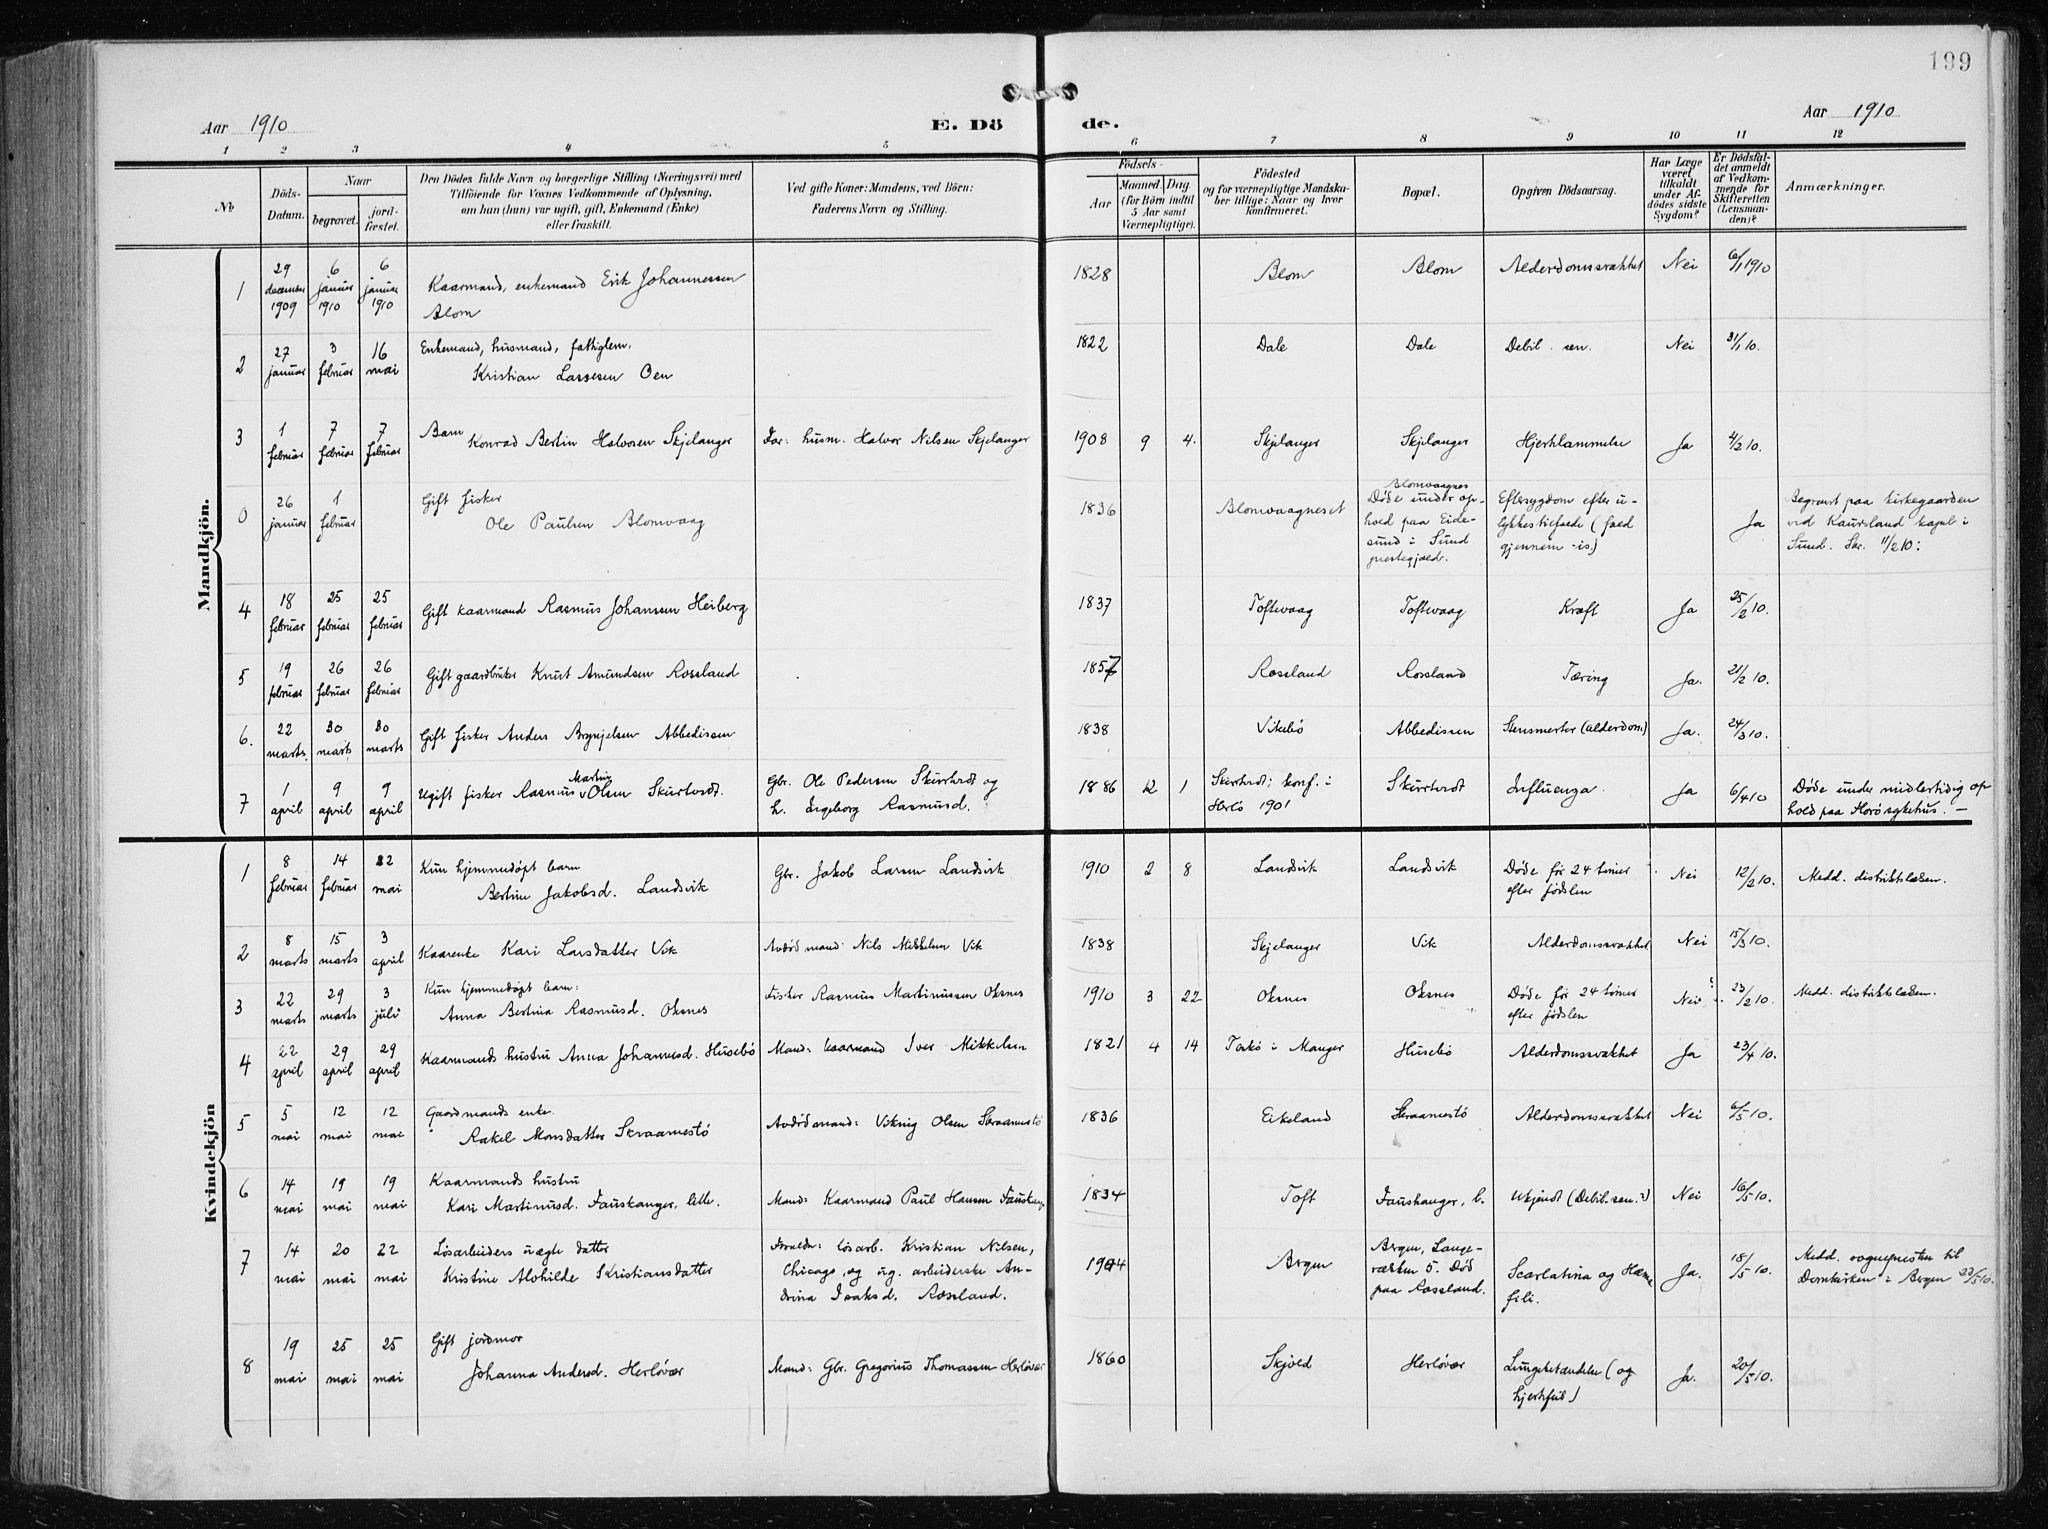 199
Aar 1910
E. Dö de.
Aar 1910
1 2 3 4 5 6 7 8 9 10 11 12
No
Döds-Datum.
Naar begravet. jordfæstet.
Den Dödes fulde Navn og borgerlige Stilling (Næringsvei) med Tilföiende for Voxnes Vedkommende af Oplysning, om han (hun) var ugift, gift, Enkemand (Enke) eller fraskilt.
Ved gifte Koner: Mandens, ved Börn: Faderens Navn og Stilling.
Födsels-Aar Maaned. Dag (for Börn indtil 5 Aar samt Værnepligtige).
Födested og for værnepligtige Mandskaber tillige: Naar og hvor konfirmeret.
Bopæl.
Opgiven Dödsaarsag.
Har Læge været tilkaldt under Afdödes sidste Sygdom?
Er Dödsfaldet anmeldt af Vedkommende for Skifteretten (Lensmanden)?
Anmærkninger.
Mandkjön.
1 29 december 1909 6 januar 1910 6 januar 1910 Kaarmand, enkemand Erik Johannessen Blom 1828 Blom Blom Alderdomssvakhet Nei 6/1 1910
2 27 januar 3 februar 16 mai Enkemand, husmand, fattiglem. Kristian Lassesen Oen 1822 Dale Dale Debil. sen. Nei 31/1 10.
3 1 februar 7 februar 7 februar Barn Konrad Bertin Halvorsen Skjelanger Far: husm. Halvor Nilsen Skjelanger 1908 9 4. Skjelanger Skjelanger Hjertelammelse Ja 4/2 10.
0 26 januar 1 februar Gift fisker Ole Paulsen Blomvaag 1836 Blomvaagneset Blomvaagnes Døde under ophold paa Eidesund i Sund prestegjæld. Eftersygdom efter ulykkestilfælde (fald gjennem is) Ja Begravt paa kirkegaarden ved Kaursland kapel i Sund. Skr. 11/2 10:
4 18 februar 25 februar 25 februar Gift kaarmand Rasmus Johanssen Heiberg 1837 Toftevaag Toftevaag Kræft Ja 25/2 10.
5 19 februar 26 februar 26 februar Gift gaardbruker Knut Amundsen Rossland 1857 Rossland Rossland Tæring Ja. 21/2 10.
6. 22 marts 30 marts 30 marts Gift fisker Anders Brynjelsen Abbedissen 1838 Vikebø Abbedissen Stensmerter (alderdom) Ja. 24/3 10.
7 1 april 9 april 9 april Ugift fisker Rasmus Martin Olsen Skurtvedt. Gbr. Ole Pedersen Skurtvedt og h. Ingeborg Rasmusd. 1886 12 1 Skurtvedt; konf. i Herlø 1901 Skurtvedt Influenza. Ja 6/4 10 Døde under midlertidig ophold paa Florøsykehus. —
Kvindekjön
1 8 februar 14 februar 22 mai Kun hjemmedøpt barn Bertine Jakobsd. Landsvik Gbr. Jakob Larsen Landsvik 1910 2 8 Landsvik Landsvik Døde før 24 timer efter fødslen Nei 12/2 10. Medd. distriktslægen.
2 8 marts 15 marts 3 april Kaarenke Kari Larsdatter Vik Avdød mand: Nils Mikkelsen Vik 1838 Skjelanger Vik Alderdomssvakhet Nei 15/3 10.
3 22 marts 29 marts 3 juli Kun hjemmedøpt barn: Anna Bertina Rasmusd. Oksnes Fisker Rasmus Martinussen Oksnes 1910 3 22 Oksnes Oksnes Døde før 24 timer efter fødslen Nei 23/2 10. Medd. distriktslægen.
4 22 april 29 april 29 april Kaarmands hustru Anna Johannesd. Husebø Mand: kaarmand Iver Mikkelsen 1821 4 14 Toskø i Manger Husebø Alderdomssvakhet Ja 23/4 10.
5 5 mai 12 mai 12 mai Gaardmands enke. Rakel Monsdatter Skraamestø Avdød mand: Viking Olsen Skraamestø 1836 Eikeland Skraamestø Alderdomssvakhet Nei 6/5 10.
6 14 mai 19 mai 19 mai Kaarmands hustru Kari Martinusd. Fauskanger, lille. Mand: Kaarmand Paul Hansen Fauskang. 1834 Toft Fauskanger, l. Ukjendt (Debil. sen.?) Nei 16/5 10.
7 14 mai 20 mai 22 mai Løsarbeiders uægte datter Kristine Alohilde Kristiansdatter Foreldr: løsarb. Kristian Nilsen, Chicago, og ug. arbeiderske Andrina Isaksd. Rossland. 1904 Bergen Bergen, Lange- 5. Død paa Rossland. Scarlatina og Ja. 18/5 10. Medd. sognepresten til Domkirken i Bergen 23/5 10.
8 19 mai 25 mai 25 mai Gift jordmor Johanna Andersd. Herløvær Mand: Gbr. Gregorius Thomassen Herløvær 1860 Skjold Herløvær Lungebetændelse (og hjertefeil) Ja. 20/5 10.